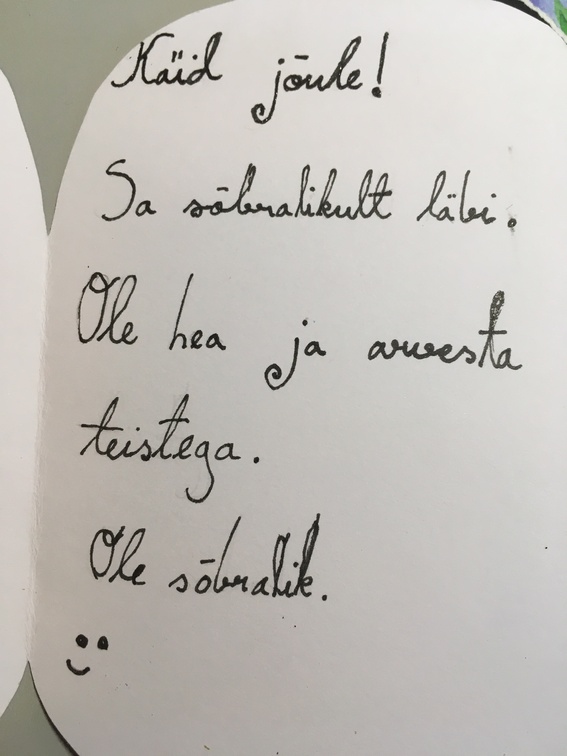 Häid jõule!
Sa sõbralikult läbi.
Ole hea ja arvesta
teistega.
Ole sõbralik.